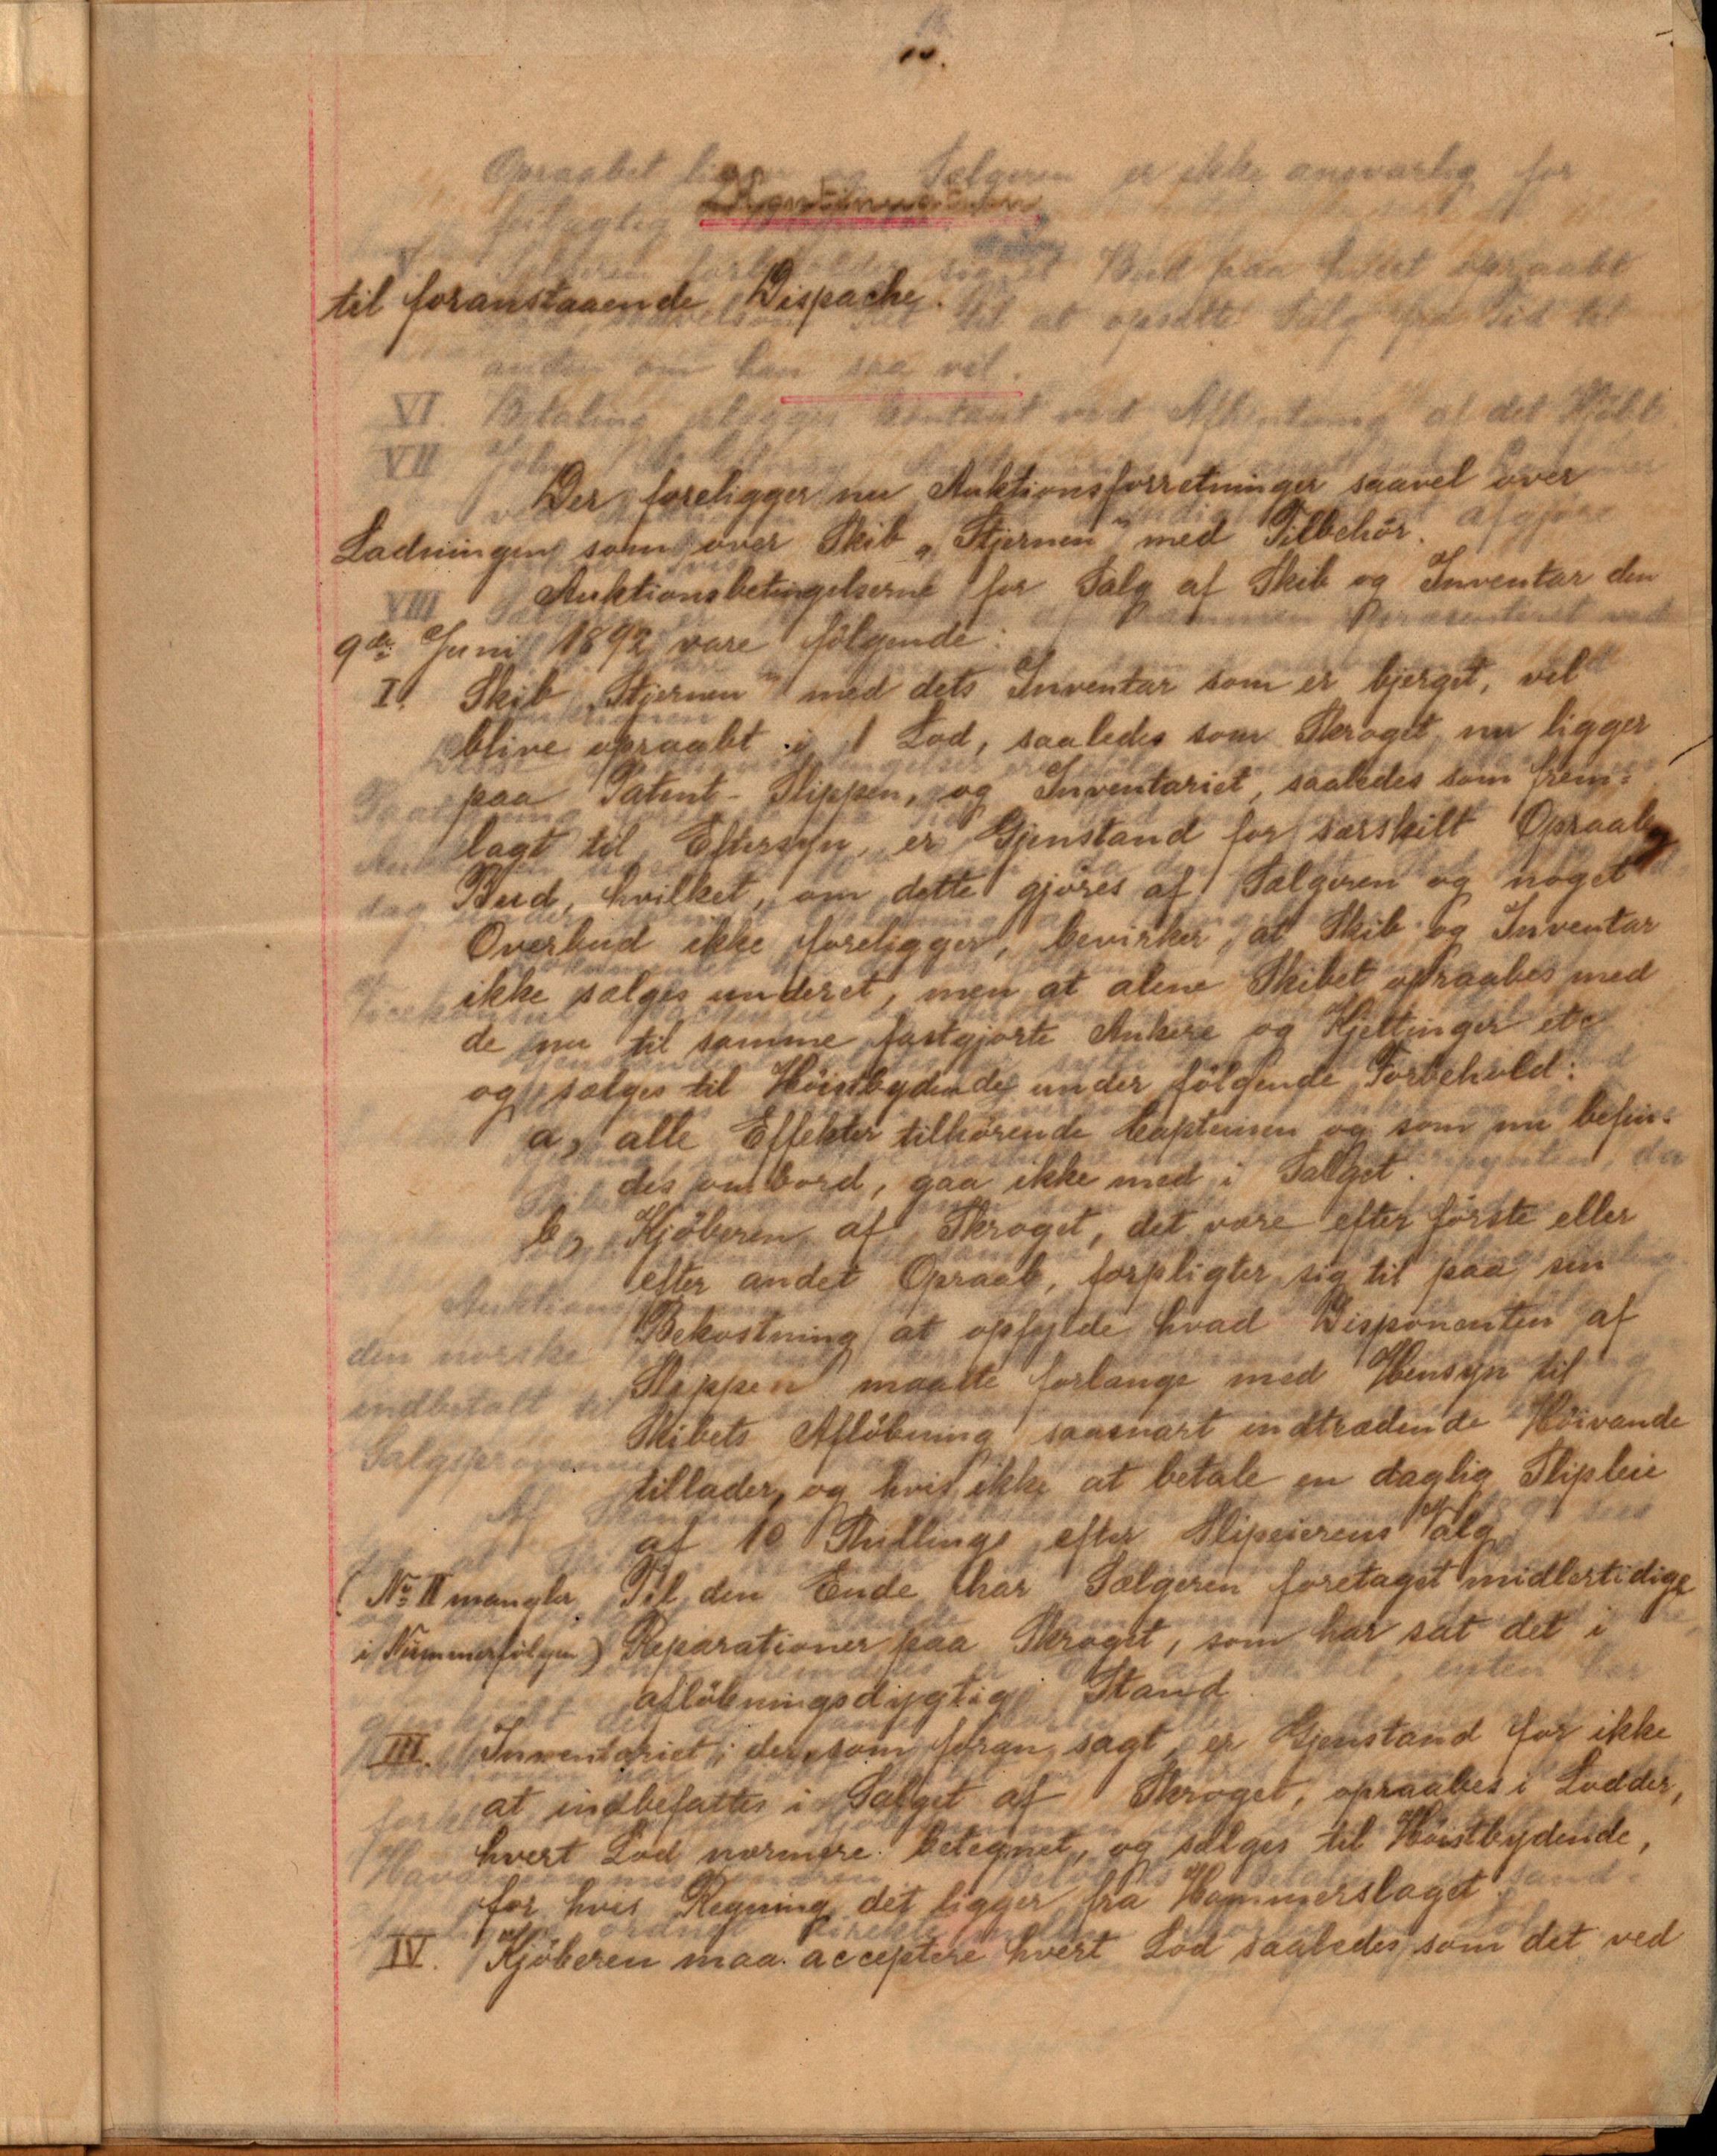 Kontinuation
til foranstaaende Dispache.
Der foreligger nu Auktionsforretninger saavel over
Ladningen som over Skib „Stjernen" med Tilbehör.
Auktionsbetingelserne for Salg af Skib og Inventar den
9de Juni 1892 vare fölgende:
I. Skib „Stjernen" med dets Inventar som er bjerget, vil
blive opraabt i 1 Lod, saaledes som Skroget nu ligger
paa Patent-Slippen, og Inventariet, saaledes som frem-
lagt til Eftersyn, er Gjenstand for særskilt Opraab,
Bud, hvilket, om dette gjöres af Sælgeren og noget
Overbud ikke foreligger, bevirker, at Skib og Inventar
ikke sælges underet, men at alene Skibet opraabes med
de nu til samme fastgjorte Ankere og Kjettinger etc
og sælges til Höistbydende under fölgende Forbehold:
a, alle Effekter tilhørende Capteinen og som nu befin-
des ombord, gaa ikke med i Salget.
b, Kjöberen af Skroget, det være efter förste eller
efter andet Opraab, forpligter sig til paa sin
Bekostning at opfylde hvad Disponenten af
Slippen maatte forlange med Hensyn til
Skibets Aflöbning saasnart indtrædende Höivande
tillader, og hvis ikke at betale en daglig Slipleie
af 10 Shillings efter Slipeierens Valg
(No II mangler Til den Ende har Sælgeren foretaget midlertidige
i Nummerfölgen) Reparationer paa Skroget, som har sat det i
aflöbningsdygtig Stand.
III. Inventariet, der, som foran sagt, er Gjenstand for ikke
at indbefattes i Salget af Skroget, opraabes i Lodder,
hvert Lod nærmere betegnet, og sælges til Höistbydende,
for hvis Regning det ligger fra Hammerslaget.
IV. Kjöberen maa acceptere hvert Lod saaledes som det ved